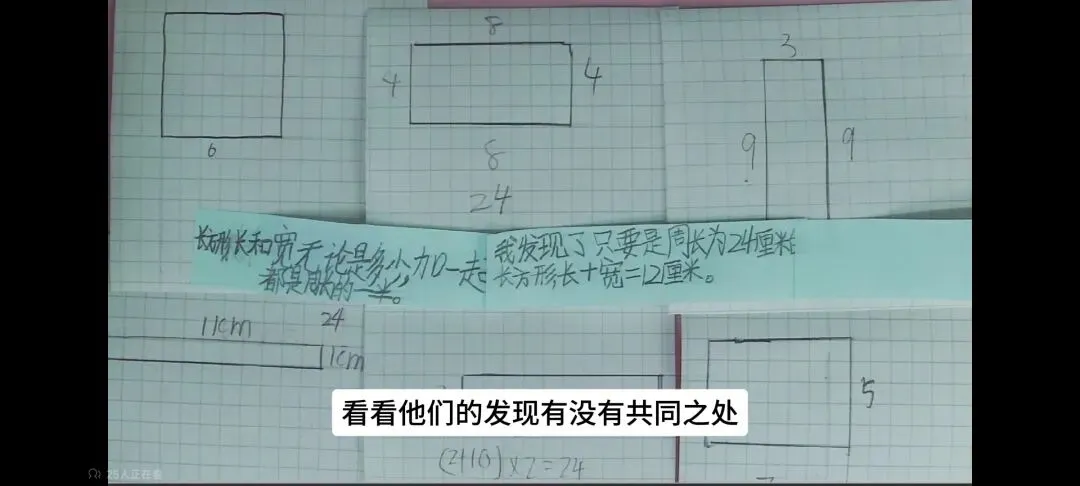 8
4
4
8
24
6
3
9
9
长方形长和宽无论是多少,加一起
都是周长的一半。
我发现了只要是周长为24厘米
长方形长+宽=12厘米。
11cm
24
1cm
5
看看他们的发现有没有共同之处
(2+10)×2=24
25人正在看